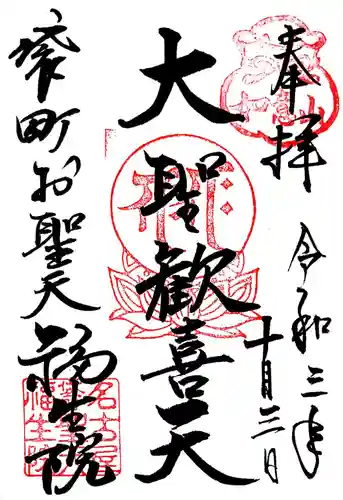 奉拝
令和三年
十月三日
大聖歓喜天
袋町お聖天
福生院